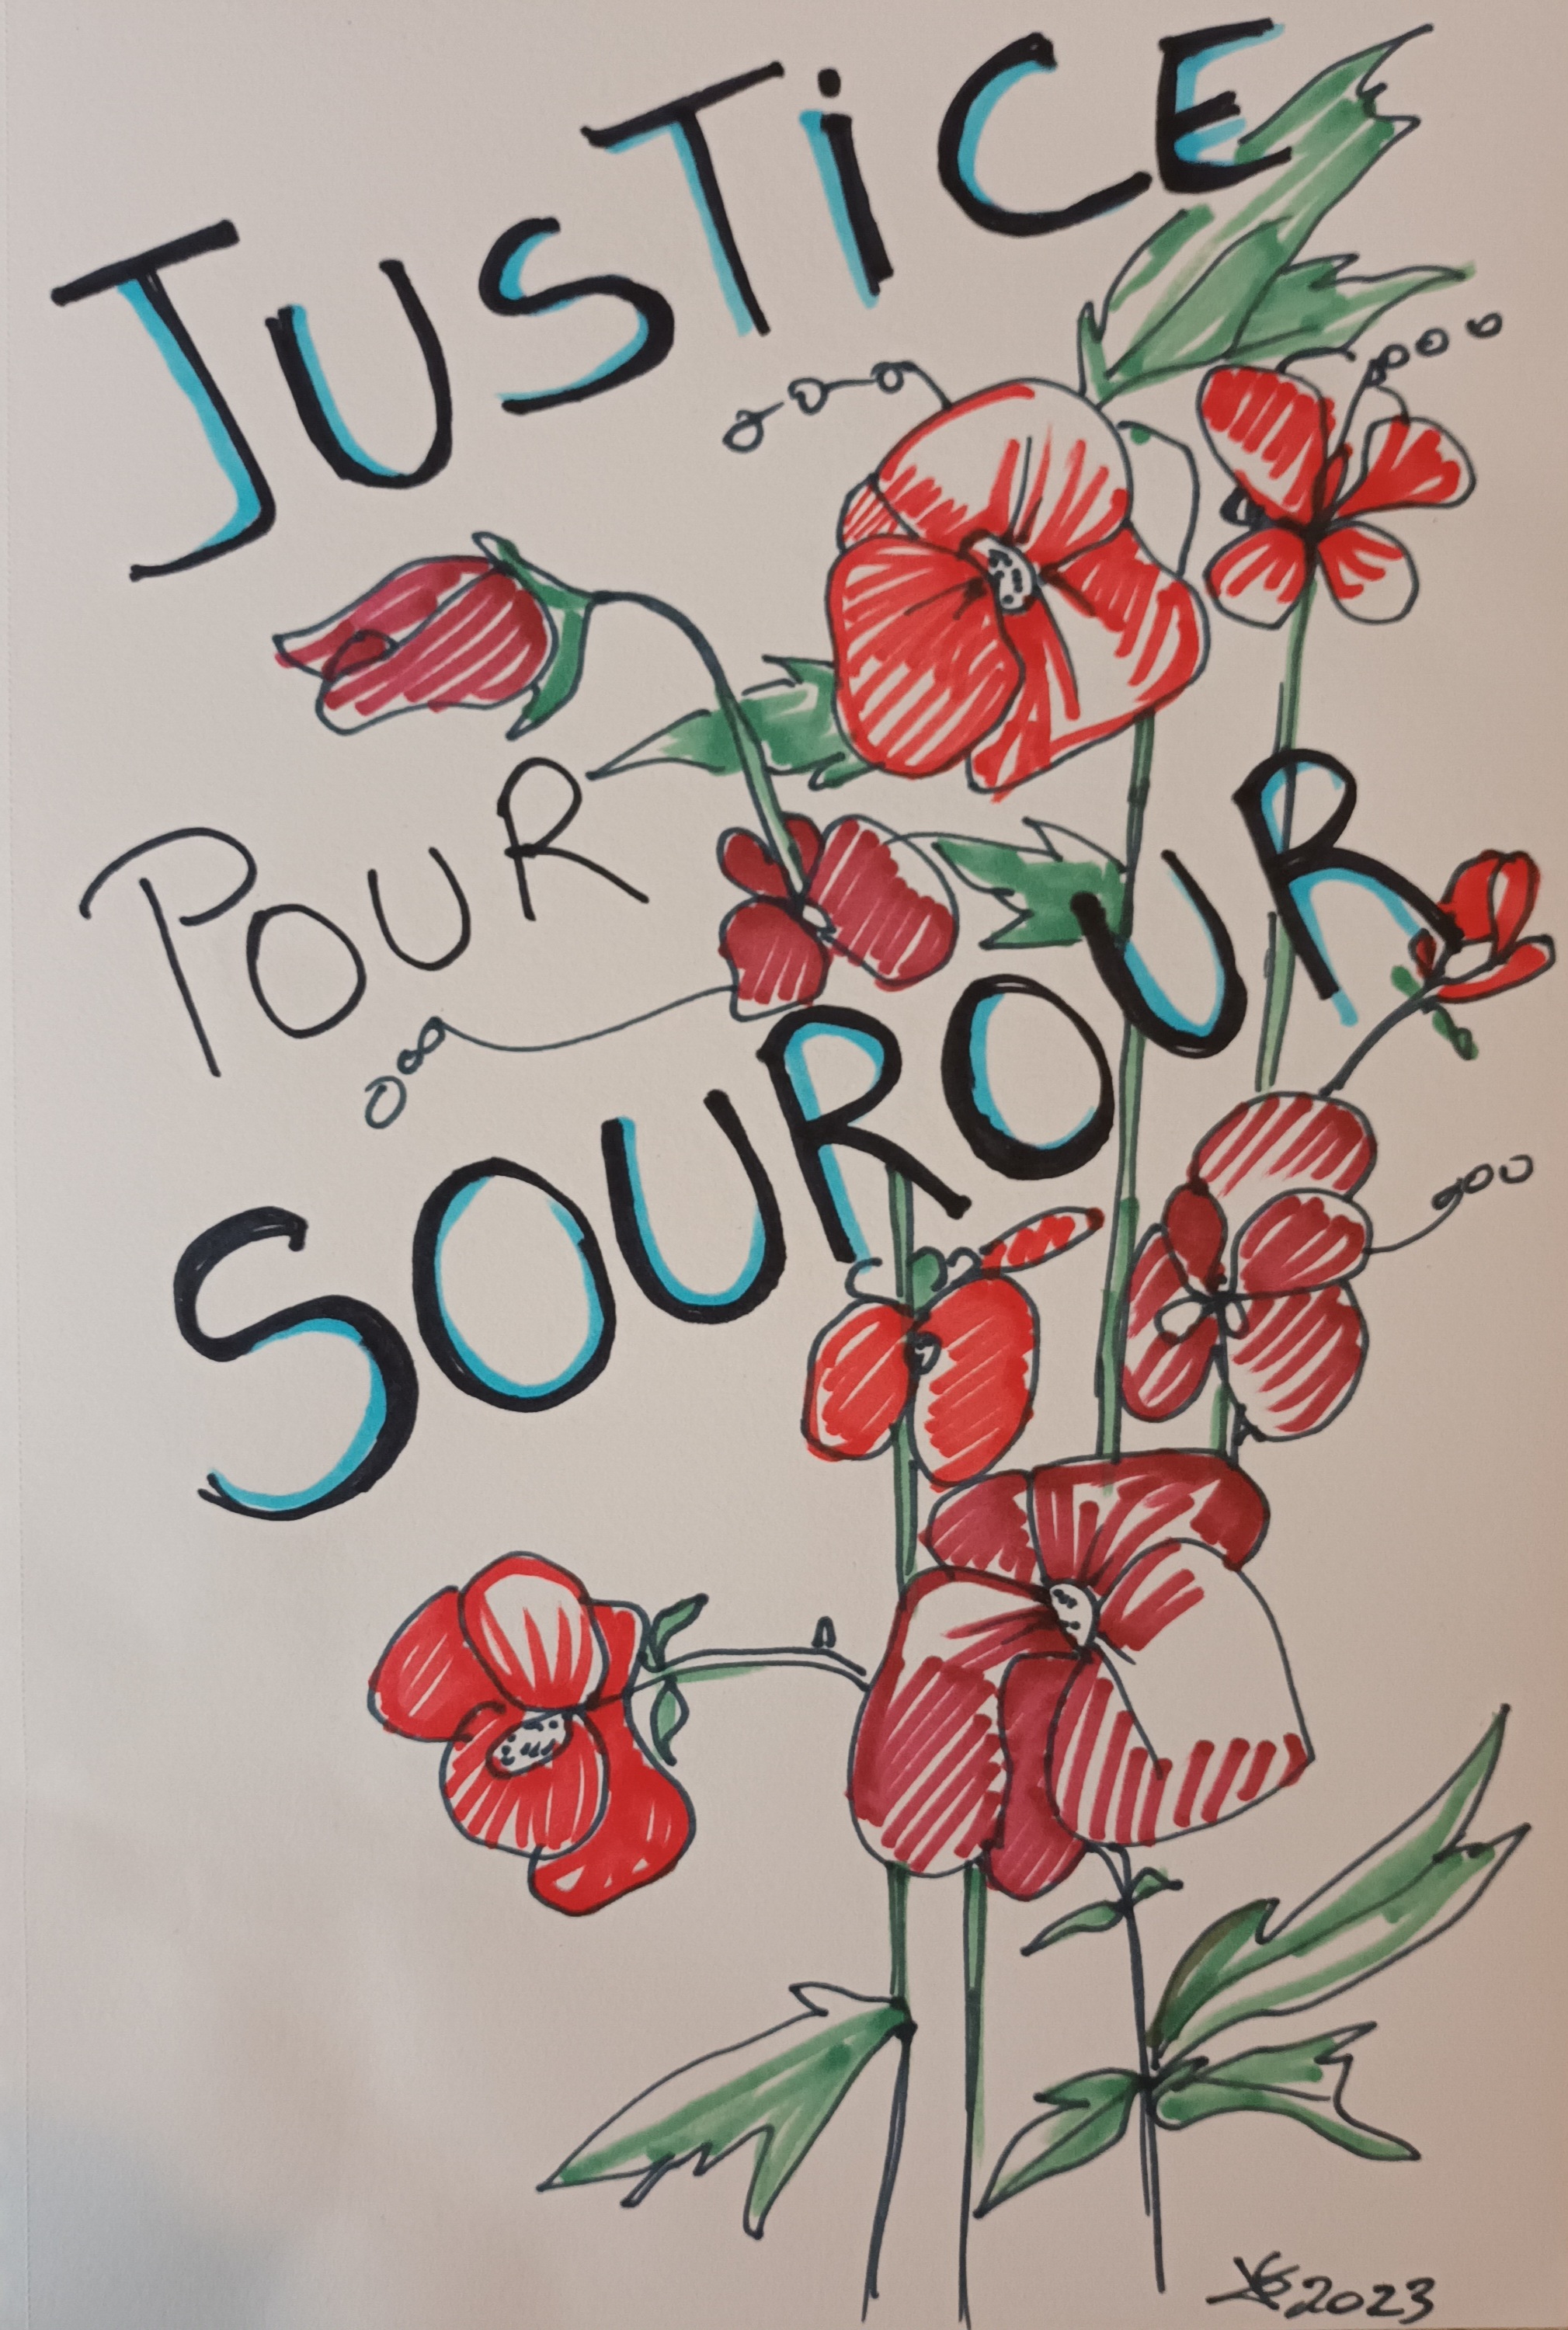 JUSTiCE
POUR
SOUROUR
2023